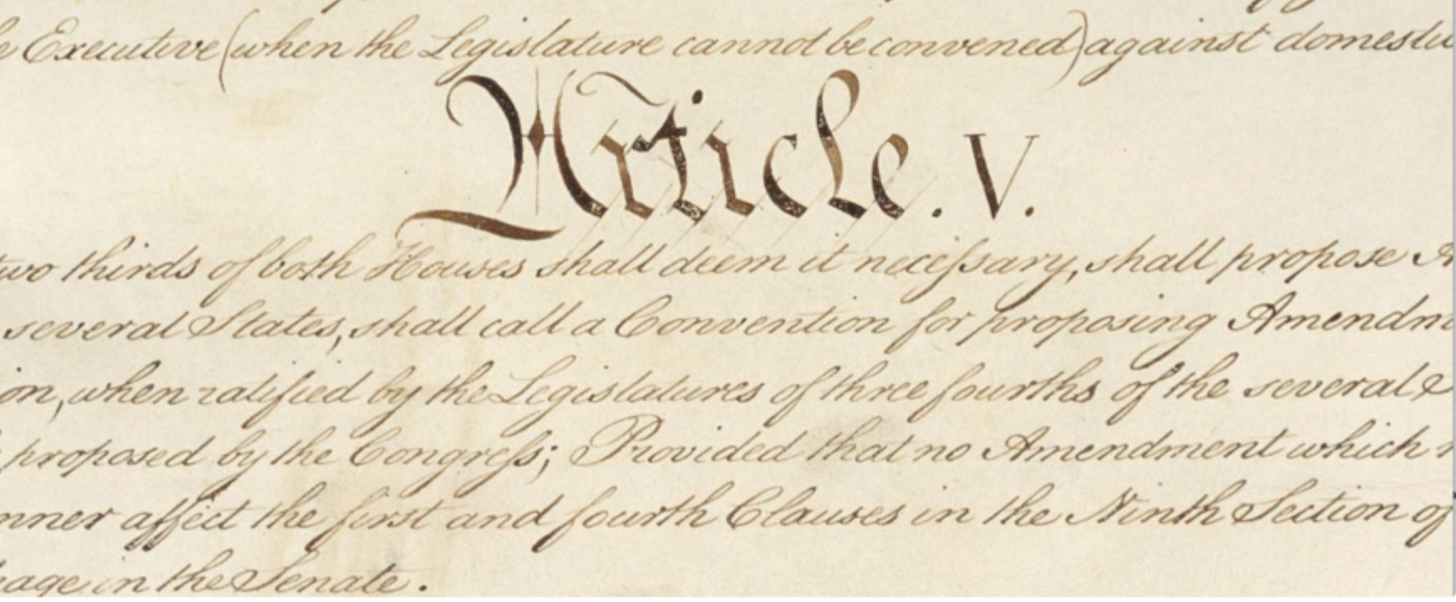 e Executive (when the Legislature cannot be convened) against domestic
Article. V.
two thirds of both Houses shall deem it necessary, shall propose
several States, shall call a Convention for proposing Amendm
on, when ratified by the Legislatures of three fourths of the several
proposed by the Congress; Provided that no Amendment which
nner affect the first and fourth Clauses in the Ninth Section of
rage in the Senate.